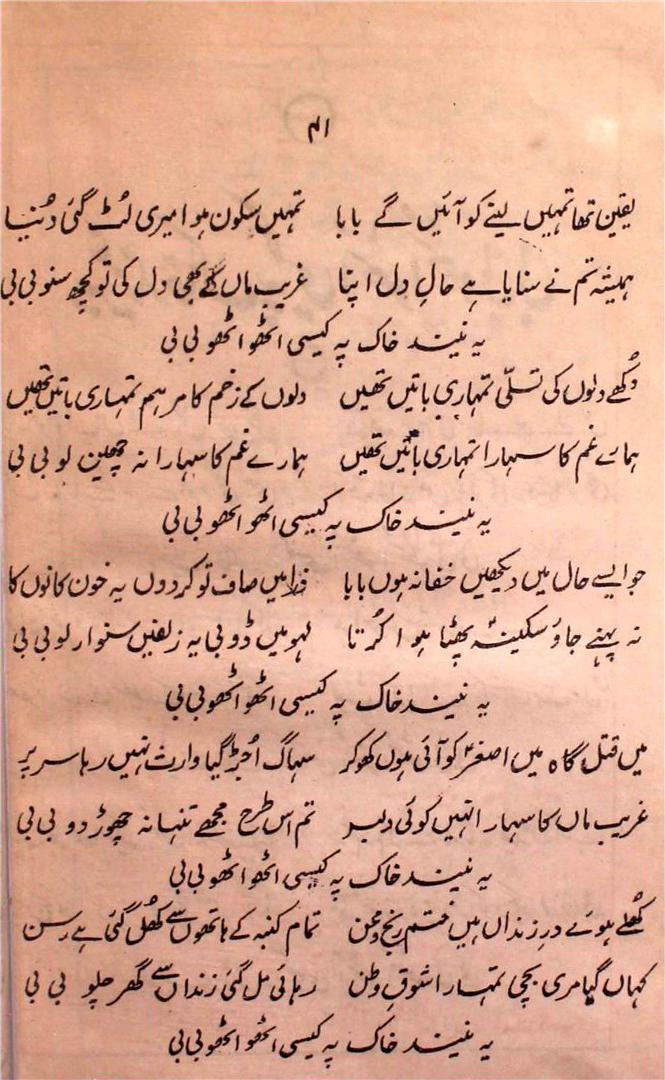 ۴۱
یقین تھا تمہیں لینے کو آئیں گے بابا تمہیں سکون ہوا میری لٹ گئی دُنیا
ہمیشہ تم نے سنایا ہے حالِ دل اپنا غریب ماں کے بھی دل کی تو کچھ سنو بی بی
یہ نیند خاک پہ کیسی اٹھو اٹھو بی بی
دُکھے دلوں کی تسلّی تمہاری باتیں تھیں دلوں کے زخم کا مرہم تمہاری باتیں تھیں
ہمارے غم کا سہارا تمہاری باتیں تھیں ہمارے غم کا سہارا نہ چھین لو بی بی
یہ نیند خاک پہ کیسی اٹھو اٹھو بی بی
جو ایسے حال میں دیکھیں خفا نہ ہوں بابا ذرا میں صاف تو کر دوں یہ خون کانوں کا
نہ پہنے جاؤ سکینہؑ پھٹا ہوا کُرتا لہو میں ڈوبی یہ زلفیں سنوار لو بی بی
یہ نیند خاک پہ کیسی اٹھو اٹھو بی بی
میں قتل گاہ میں اصغرؑ کو آئی ہوں کھو کر سہاگ اُجڑ گیا وارث نہیں رہا سر پر
غریب ماں کا سہارا نہیں کوئی دلبر تم اس طرح مجھے تنہا نہ چھوڑ دو بی بی
یہ نیند خاک پہ کیسی اٹھو اٹھو بی بی
کھُلے ہوئے درِ زنداں ہیں ختم رنج و محن تمام کنبہ کے ہاتھوں سے کھُل گئی ہے رسن
کہاں گیا مری بچی تمہارا شوقِ وطن رہائی مل گئی زنداں سے گھر چلو بی بی
یہ نیند خاک پہ کیسی اٹھو اٹھو بی بی